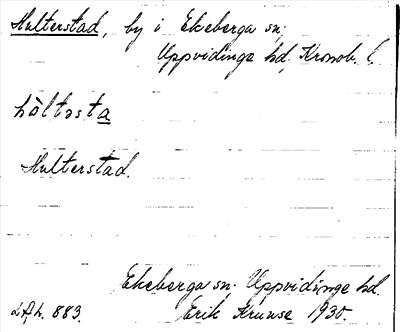 Hulterstad, by i Ekeberga sn;
Uppvidinge hd, Kronob. l.
hàltəsta
Hulterstad.
Ekeberga sn; Uppvidinge hd.
LAL. 883. Erik Kruuse 1930.